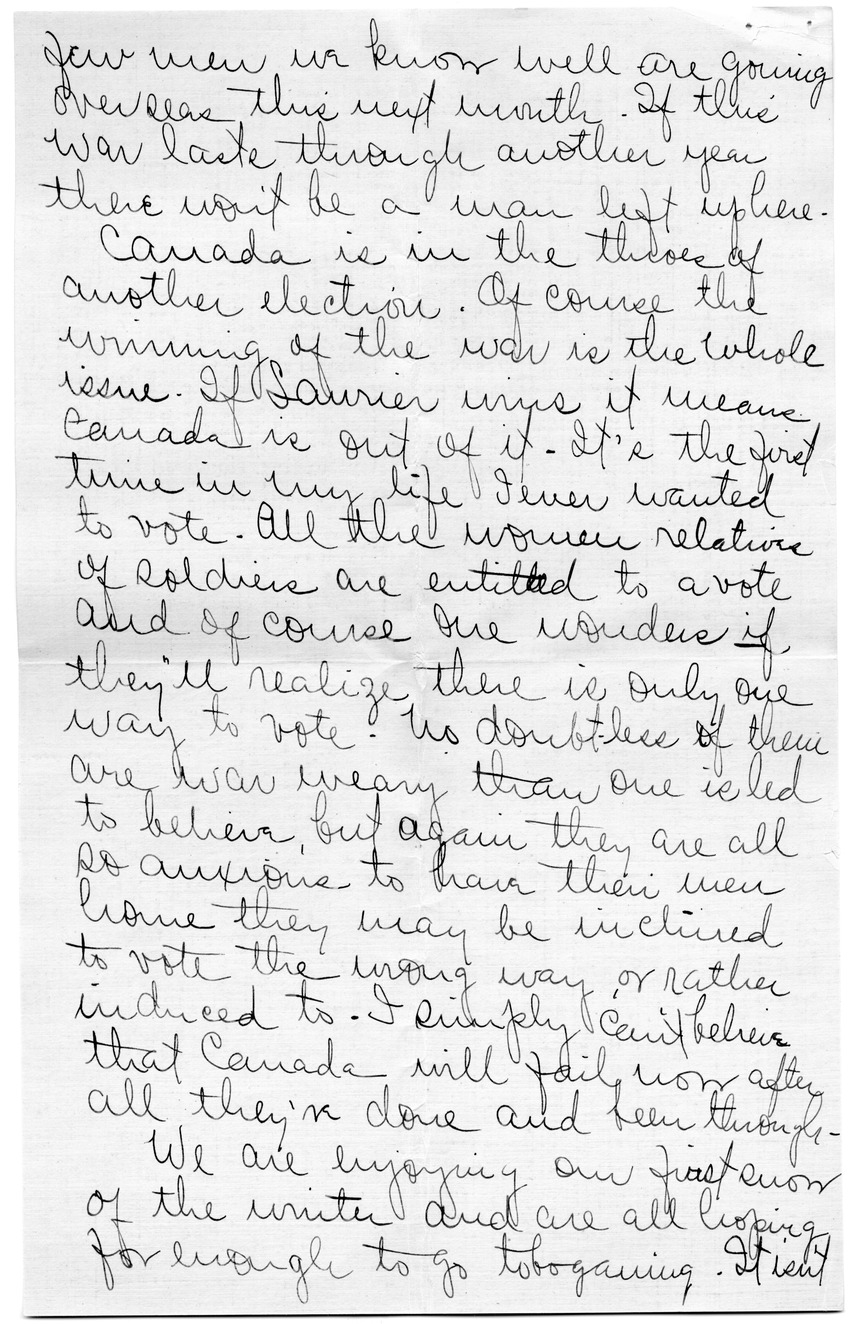 few men we know well are going
overseas this next month. If this
war lasts through another year
there won't be a man left up here.
Canada is in the throes of
another election. Of course the
winning of the war is the whole
issue. If Laurier wins it means
Canada is out of it - It's the first
time in my life I ever wanted
to vote. All the women relatives
of soldiers are entitled to a vote
and of course one wonders if
they'll realize there is only one
way to vote. No doubt less of them
are war weary than one is led
to believe, but again they are all
so anxious to have their men
home they may be inclined
to vote the wrong way or rather
induced to - I simply can't believe
that Canada will fail now after
all they've done and been through -
We are enjoying our first snow
of the winter and are all hoping
for enough to go toboganing. It isn't